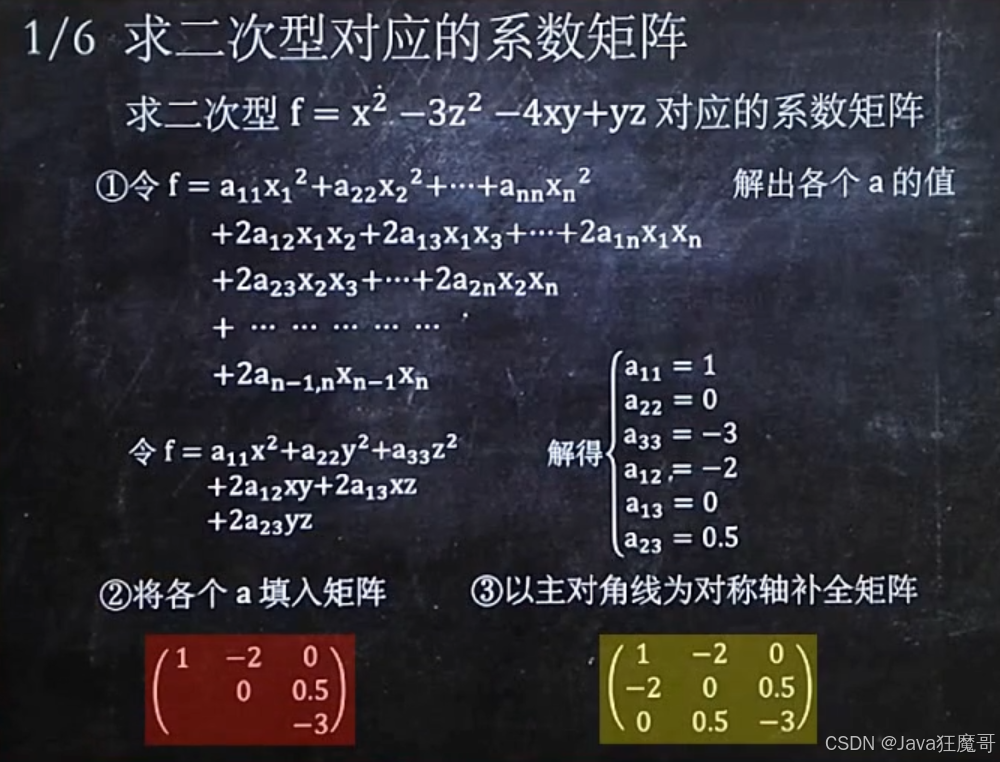 1/6 求二次型对应的系数矩阵
求二次型 f = x² −3z² −4xy+yz 对应的系数矩阵
①令 f = a₁₁x₁²+a₂₂x₂²+⋯+aₙₙxₙ² 解出各个 a 的值
+2a₁₂x₁x₂+2a₁₃x₁x₃+⋯+2a₁ₙx₁xₙ
+2a₂₃x₂x₃+⋯+2a₂ₙx₂xₙ
+ ⋯ ⋯ ⋯ ⋯ ⋯
+2aₙ₋₁,ₙxₙ₋₁xₙ
令 f = a₁₁x²+a₂₂y²+a₃₃z²
+2a₁₂xy+2a₁₃xz
+2a₂₃yz
解得
a₁₁ = 1
a₂₂ = 0
a₃₃ = −3
a₁₂ = −2
a₁₃ = 0
a₂₃ = 0.5
②将各个 a 填入矩阵
1 −2 0
0 0.5
−3
③以主对角线为对称轴补全矩阵
1 −2 0
−2 0 0.5
0 0.5 −3
CSDN @Java狂魔哥